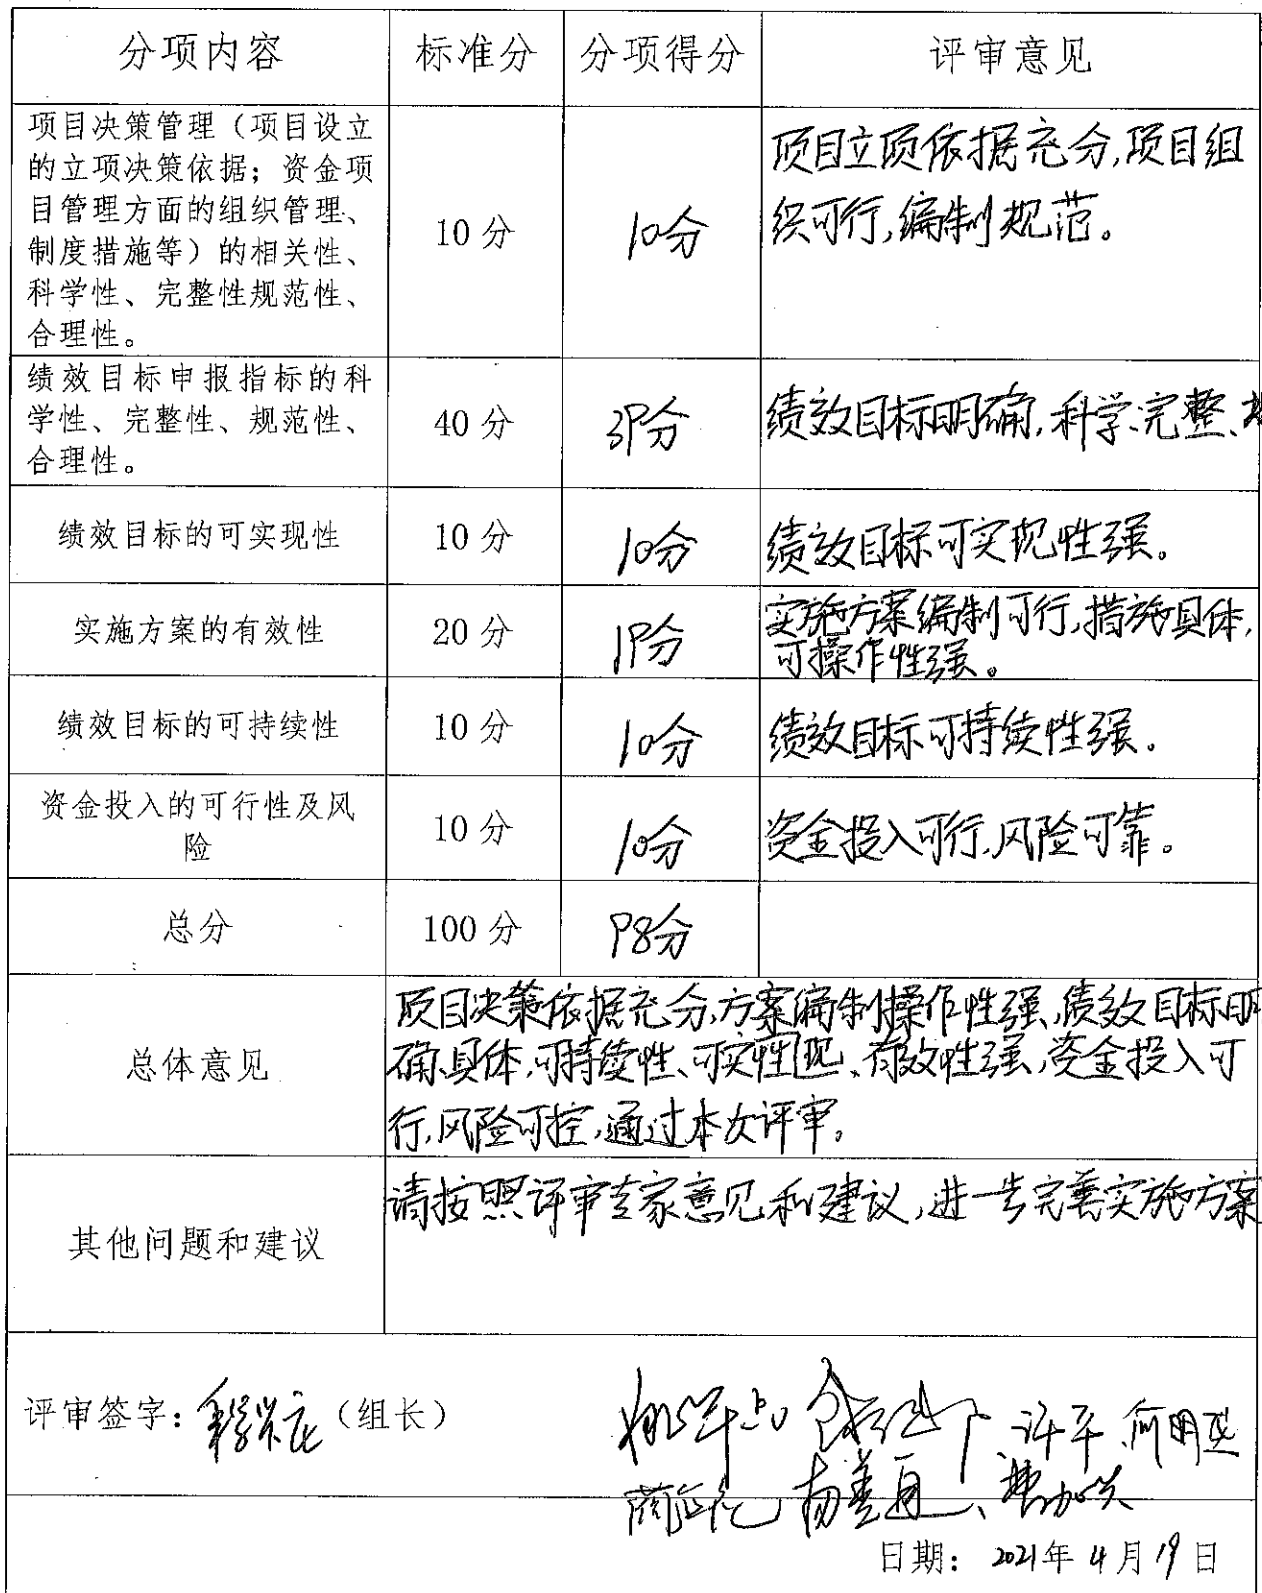 分项内容 标准分 分项得分 评审意见
项目决策管理（项目设立
的立项决策依据；资金项
目管理方面的组织管理、
制度措施等）的相关性、
科学性、完整性规范性、
合理性。
10 分
10分
项目立项依据充分,项目组
织可行,编制规范。
绩效目标申报指标的科
学性、完整性、规范性、
合理性。
40 分
39分
绩效目标明确,科学、完整、
绩效目标的可实现性
10 分
10分
绩效目标可实现性强。
实施方案的有效性
20 分
19分
实施方案编制可行,措施具体,
可操作性强。
绩效目标的可持续性
10 分
10分
绩效目标可持续性强.
资金投入的可行性及风
险
10 分
10分
资金投入可行,风险可靠。
总分
100 分
98分
总体意见
项目决策依据充分,方案编制操作性强,绩效目标明
确、具体,可持续性、可实性现、有效性强,资金投入可
行,风险可控,通过本次评审。
其他问题和建议
请按照评审专家意见和建议,进一步完善实施方案
评审签字： （组长）
许平 何明
日期： 2021年 4月 19日